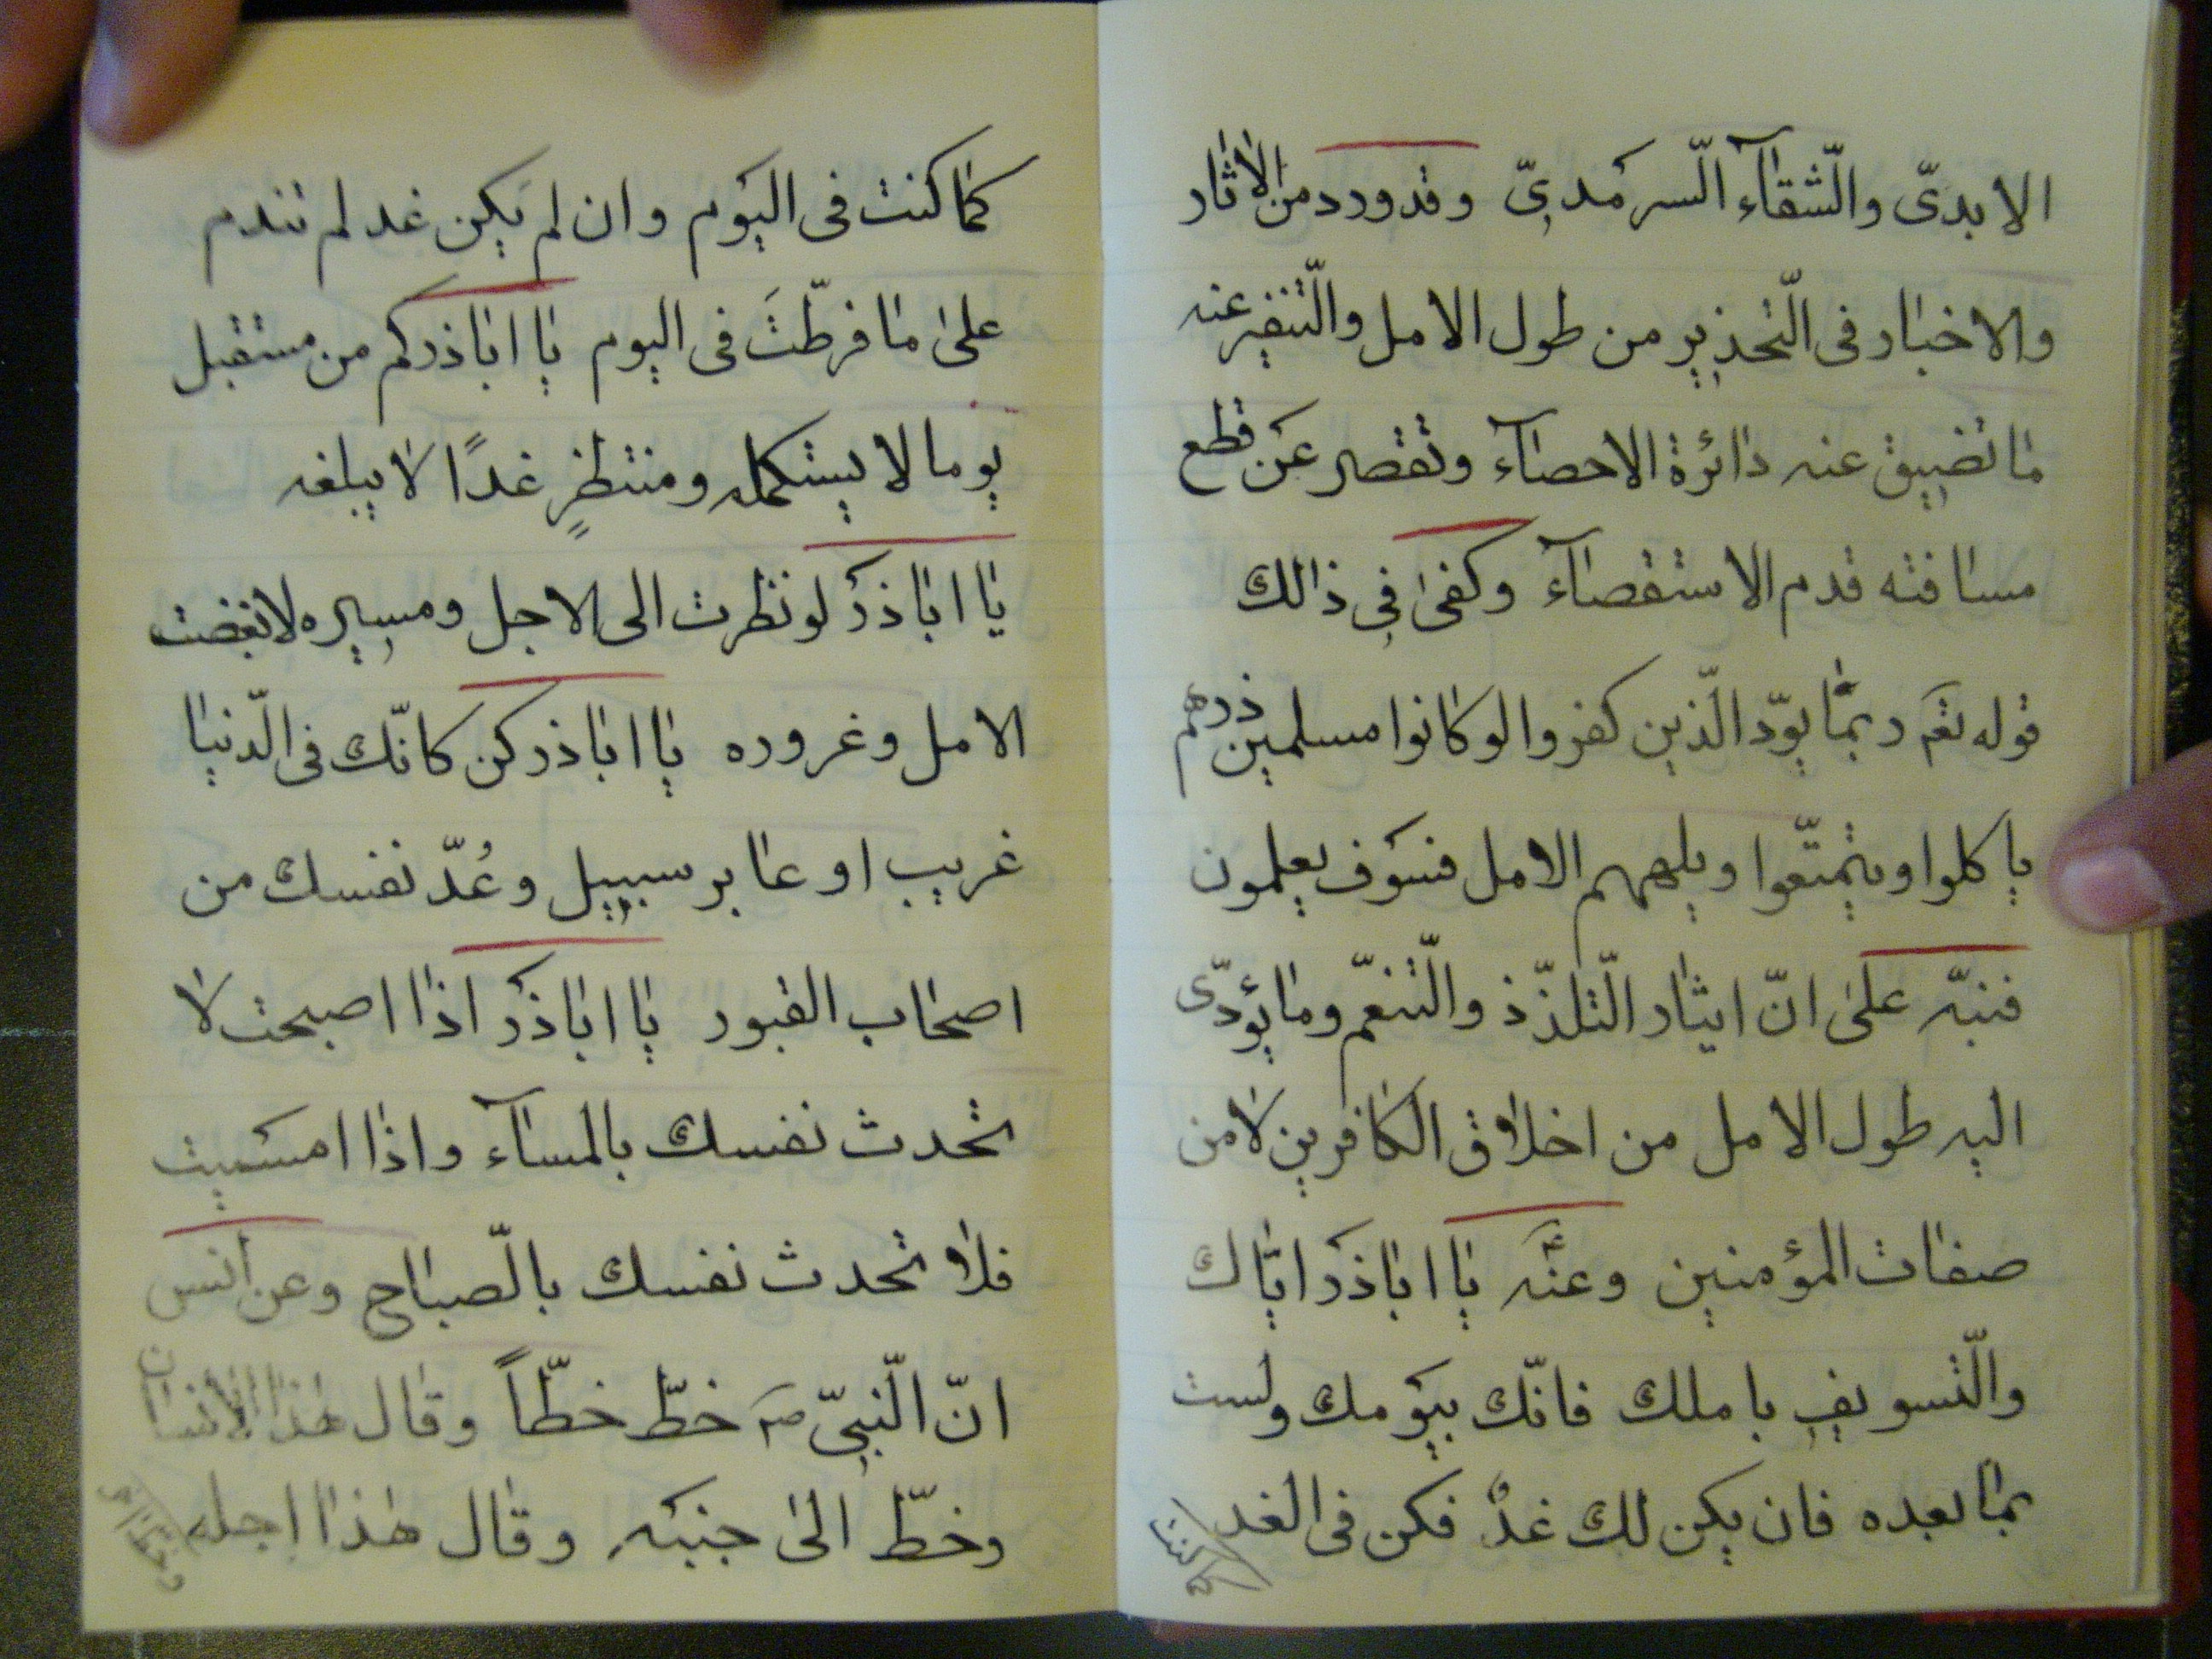 الابدیّ والشّقآء السّرمدیّ وقد ورد من الاثار
والاخبار فی التّحذیر من طول الامل والتّنفیر عنه
ما تضیق عنه دائرة الاحصآء وتقصر عن قطع
مسافته قدم الاستقصآء وکفی فی ذالك
قوله تعٓ ربمّا یودّ الّذین کفروا لو کانوا مسلمین ذرهم
یاکلوا ویتمتّعوا ویلههم الامل فسوف یعلمون
فنبّه علی انّ ایثار التّلذّذ والتّنعّم وما یؤدّی
الیه طول الامل من اخلاق الکافرین لا من
صفات المؤمنین وعنهٓ یا اباذر ایّاك
والتّسویف باملك فانّك بیومك ولست
بما بعده فان یکن لك غدٌ فکن فی الغد
کما کنت
کما کنت فی الیوم وان لم یکن غد لم تندم
علی ما فرّطتَ فی الیوم یا اباذر کم من مستقبل
یوما لا یستکمله ومنتظرٍ غدًا لا یبلغه
یا اباذر لو نظرت الی الاجل ومسیره لابغضت
الامل وغروره یا اباذر کن کانّك فی الدّنیا
غریب او عابر سبیل وعُدّ نفسك من
اصحاب القبور یا اباذر اذا اصبحت لا
تحدث نفسك بالمسآء واذا امسیت
فلا تحدث نفسك بالصّباح وعن انس
انّ النّبیّ صٓ خطّ خطّاً وقال هذا الانسان
وخطّ الی جنبه وقال هذا اجله